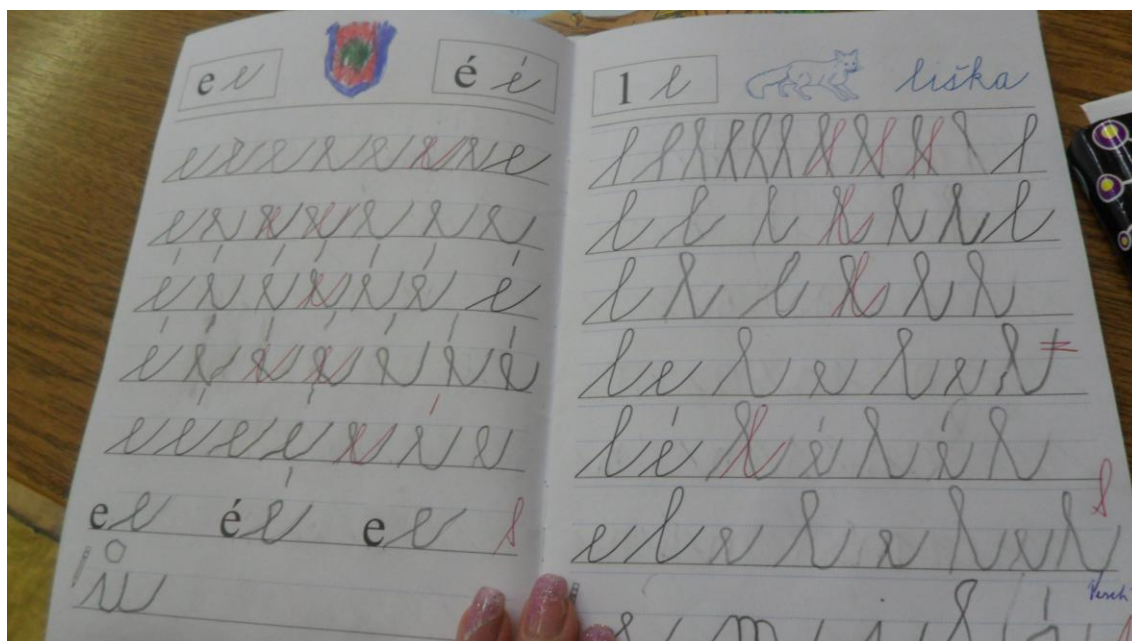 e e é é
e e e e e e e e e
e e e e e e e
é é é é é é é
é é é é é é é
e e é é e e e
e e é é e e
ů
l l liška
l l l l l l l l l l l
l l l l l l l
l l l l l l
l e l e l e l
l é l é l é l
e l e l e l e l